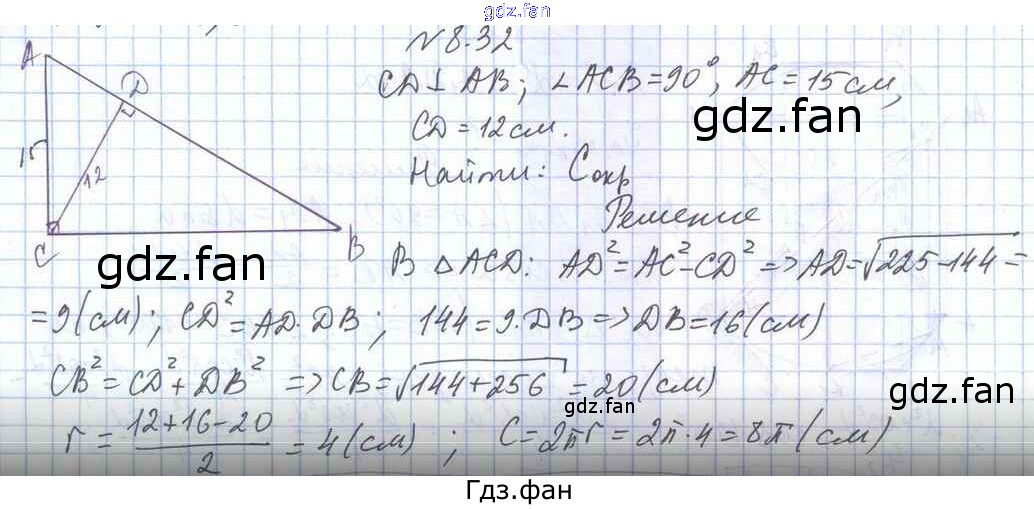 gdz.fan
N 8.32
A
D
CD ⊥ AB; ∠ACB = 90°, AC = 15 см,
gdz.fan
CD = 12 см.
15
12
Найти: Cокр
Решение
C
B
gdz.fan
В △ACD: AD² = AC² - CD² => AD = √225-144 =
= 9 (см); CD² = AD · DB; 144 = 9 · DB => DB = 16 (см)
CB² = CD² + DB² => CB = √144+256 = 20 (см)
gdz.fan
gdz.fan
r = (12+16-20)/2 = 4 (см); C = 2πr = 2π · 4 = 8π (см)
Гдз.фан